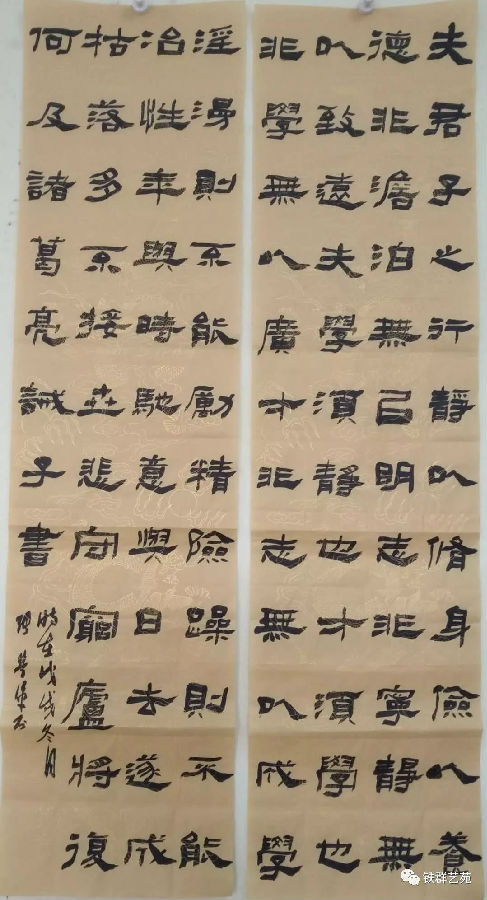 夫君子之行靜以脩身儉以養
德非澹泊無㠯明志非寧靜無
以致遠夫學須靜也才須學也
非學無以廣才非志無以成學
淫漫則不能勵精險躁則不能
冶性年與時馳意與日去遂成
枯落多不接世悲守窮廬將復
何及諸葛亮誡子書
時在戊戌冬月
铁群艺苑